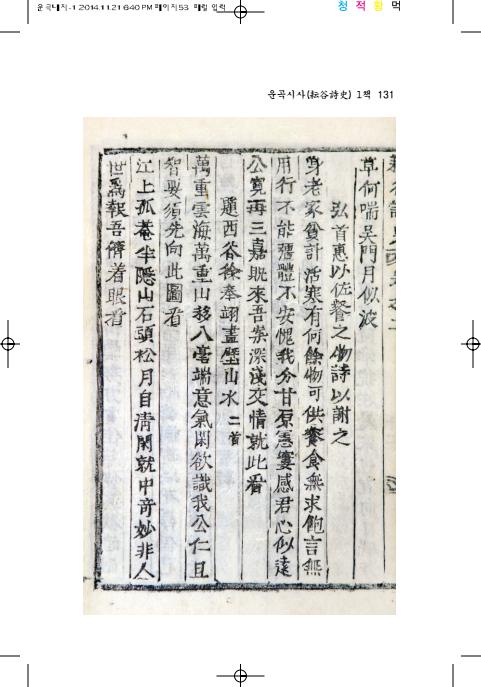 운곡내지-1 2014.11.21 6:40 PM 페이지53 매킬 입력
청 적 황 먹
운곡시사(耘谷詩史) 1책 131
草何喘吳門月似波
弘首惠以佐餐之物詩以謝之
身老家貧計活寒有何餘物可供餐食無求飽言無
用行不能彊體不安愧我分甘原憲窶感君心似遠
公寬再三嘉貺來吾案深淺交情就此看
題西谷徐奉翊畫壁山水 二首
萬重雲海萬重山移入毫端意氣閑欲識我公仁且
智要須先向此圖看
江上孤菴半隱山石頭松月自淸閑就中奇妙非人
世爲報吾儕着眼看